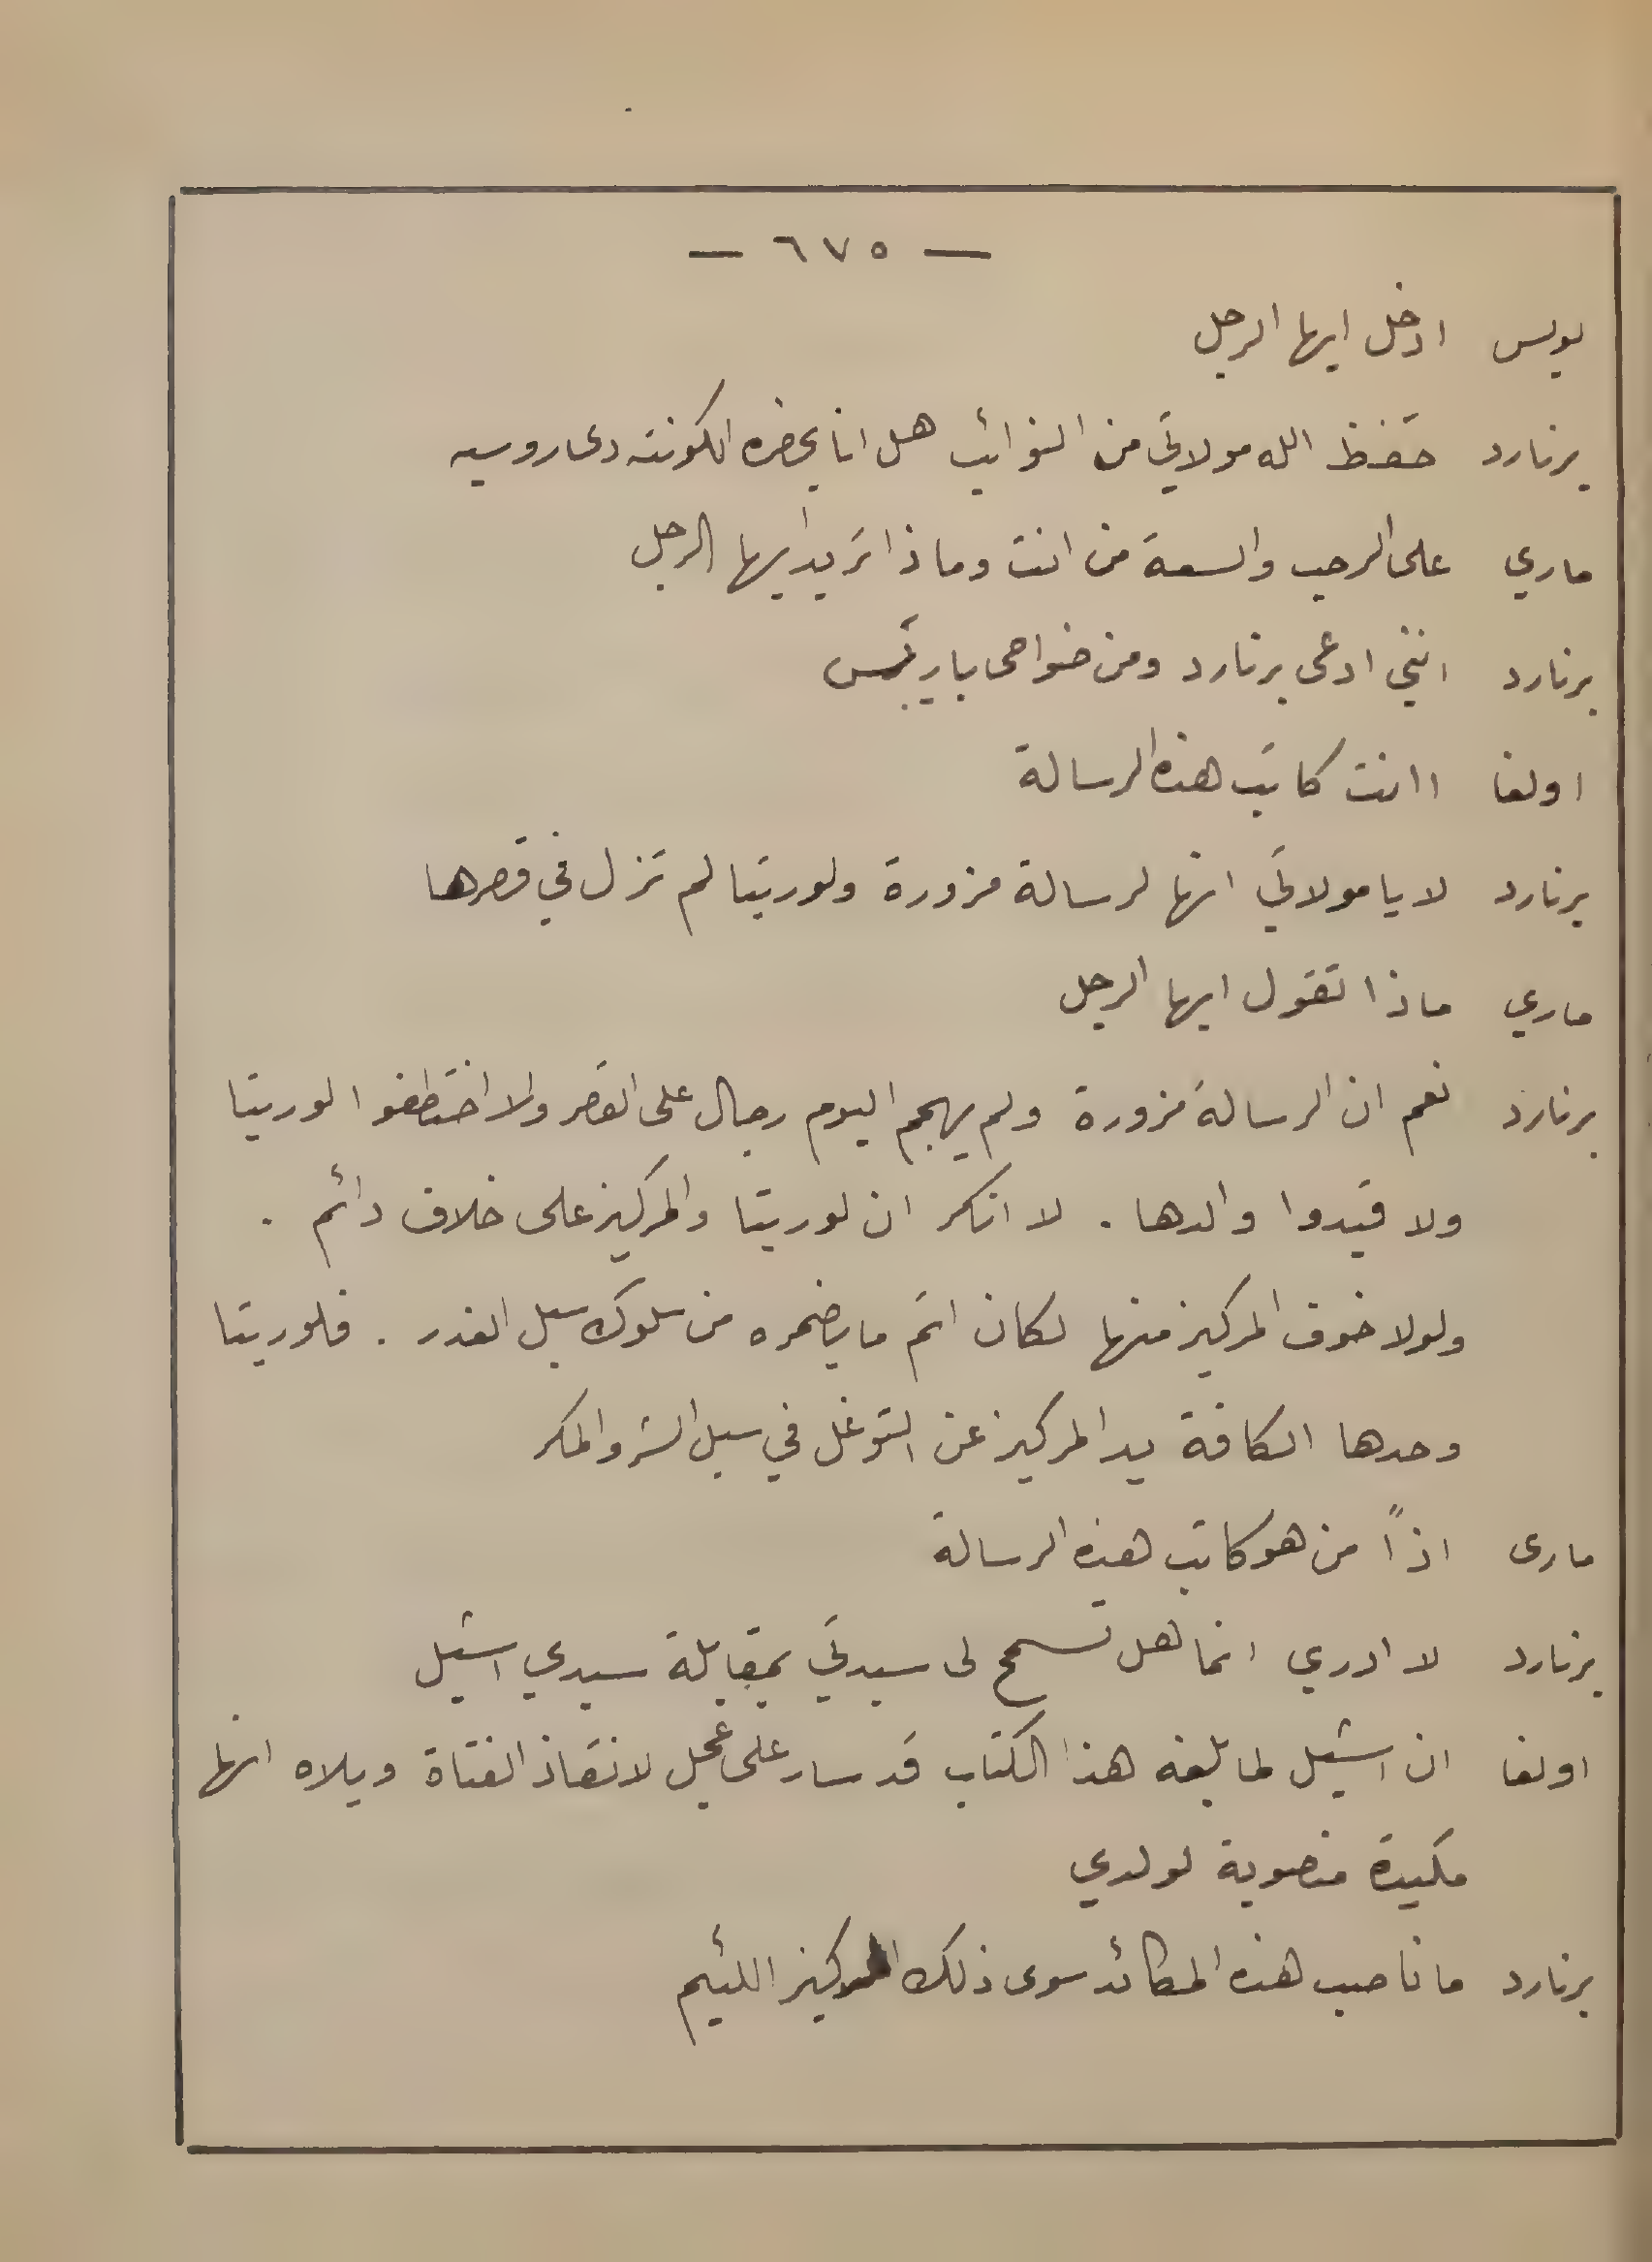 — ٦٧٥ —
لويس ادخل ايها الرجل
برنارد حفظ الله مولاتي من النوائب هل انا بحضره الكونته دى روسيه
ماري على الرحب والسعة من انت وماذا تريد ايها الرجل
برنارد انني ادعى برنارد ومن ضواحى باريس
اولغا اانت كاتب هذه الرسالة
برنارد لا يا مولاتي انها لرسالة مزورة ولوريتا لم تزل في قصرها
ماري ماذا تقول ايها الرجل
برنارد نعم ان الرسالة مزورة ولم يهجم اليوم رجال على القصر ولا اختطفوا لوريتا
ولا قيدوا والدها . لا انكر ان لوريتا والمركيز على خلاف دائم .
ولولا خوف المركيز منها لكان اتم ما يضمره من سلوك سبل الغدر . فلوريتا
وحدها الكافة يد المركيز عن التوغل في سبل الشر والمكر
مارى اذاً من هو كاتب هذه الرسالة
برنارد لا ادري انما هل تسمح لى سيدتي بمقابلة سيدي اشيل
اولغا ان اشيل لما بلغه هذا الكتاب قد سار على عجل لانقاذ الفتاة ويلاه انها
مكيدة منصوبة لولدي
برنارد ما ناصب هذه المكائد سوى ذلك المركيز اللئيم